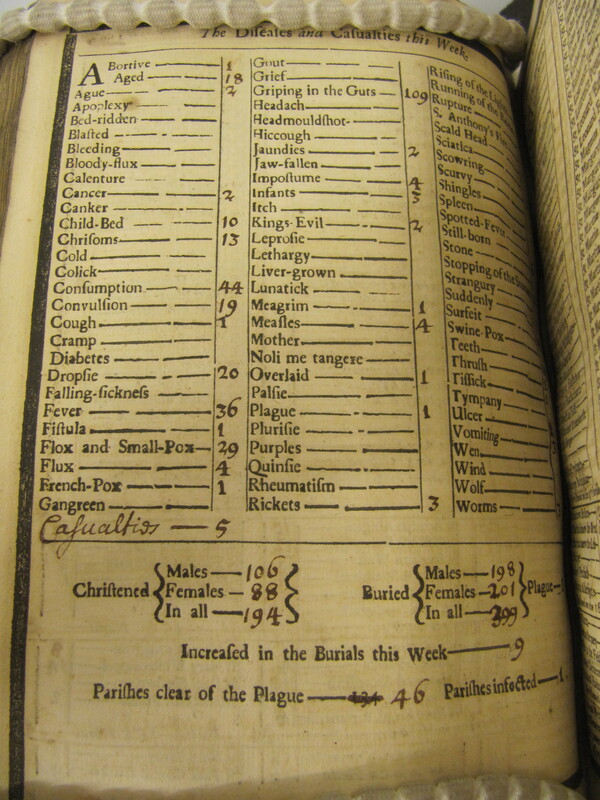 The Diseases and Casualties this Week.
Abortive 1
Aged 18
Ague 2
Apoplexy
Bed-ridden
Blasted
Bleeding
Bloody-flux
Calenture
Cancer 2
Canker
Child-Bed 10
Chrisoms 13
Cold
Colick
Consumption 44
Convulsion 19
Cough 1
Cramp
Diabetes
Dropsie 20
Falling-sickness
Fever 36
Fistula 1
Flox and Small-Pox 29
Flux 4
French-Pox 1
Gangreen
Casualties 5
Gout
Grief
Griping in the Guts 109
Headach
Headmouldshot
Hiccough
Jaundies 2
Jaw-fallen
Impostume 4
Infants 3
Itch
Kings-Evil 2
Leprosie
Lethargy
Liver-grown
Lunatick
Meagrim 1
Measles 4
Mother
Noli me tangere
Overlaid 1
Palsie
Plague 1
Plurisie
Purples
Quinsie
Rheumatism
Rickets 3
Rising of the
Running of the
Rupture
S. Anthony's
Scald Head
Sciatica
Scowring
Scurvy
Shingles
Spleen
Spotted-Fever
Still-born
Stone
Stopping of the
Strangury
Suddenly
Surfeit
Swine-Pox
Teeth
Thrush
Tissick
Tympany
Ulcer
Vomiting
Wen
Wind
Wolf
Worms
Christened { Males 106 Females 88 In all 194 }
Buried { Males 198 Females 201 In all 399 } Plague
Increased in the Burials this Week 9
Parishes clear of the Plague 46 Parishes infected 1